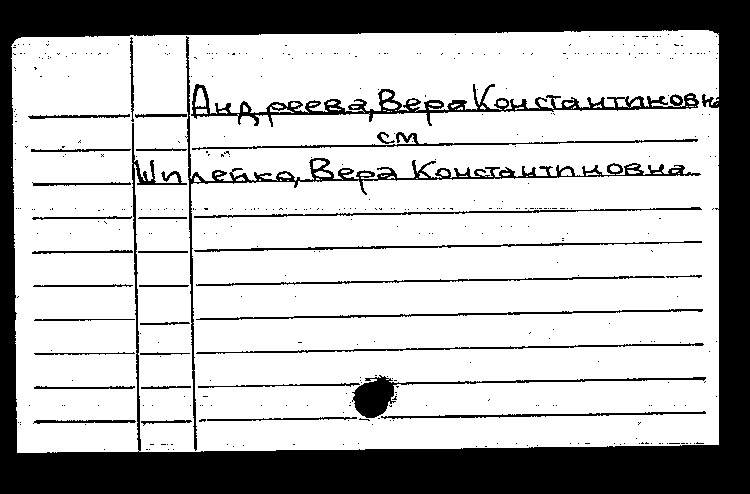 Андреева, Вера Константиновна
см.
Шилейко, Вера Константиновна